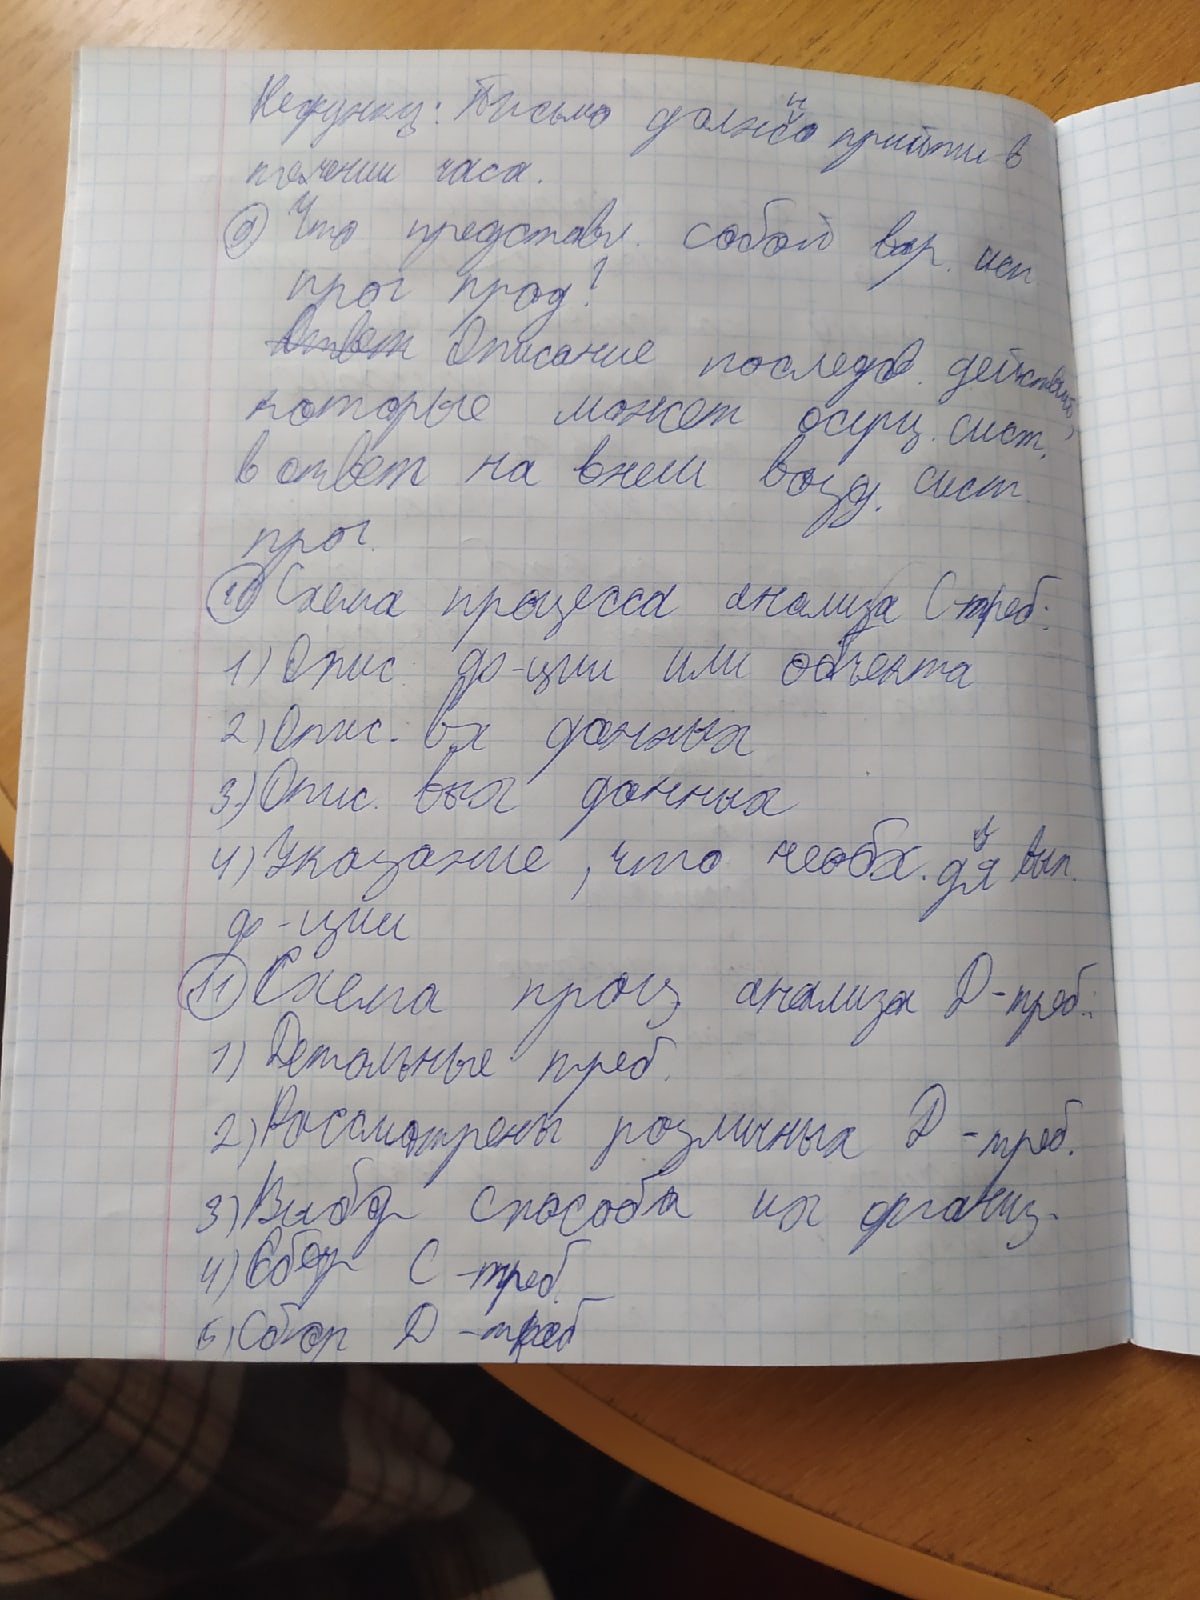 Нефункц: Письмо должно прийти в
течении часа.
9 Что представл. собой вар. исп
прог прод?
Ответ Описание последов. действий,
которые может осущ. сист.
в ответ на внеш возд. сист.
прог.
10 Схема процесса анализа С-треб:
1) Опис. ф-ции или объекта
2) Опис. вх данных
3) Опис. вых данных
4) Указание, что необх. для вып.
ф-ции
11 Схема проц анализа D-треб.:
1) Детальные треб.
2) Рассмотрены различных D-треб.
3) Выбор способа их организ.
4) Сбор С-треб.
5) Сбор D-треб